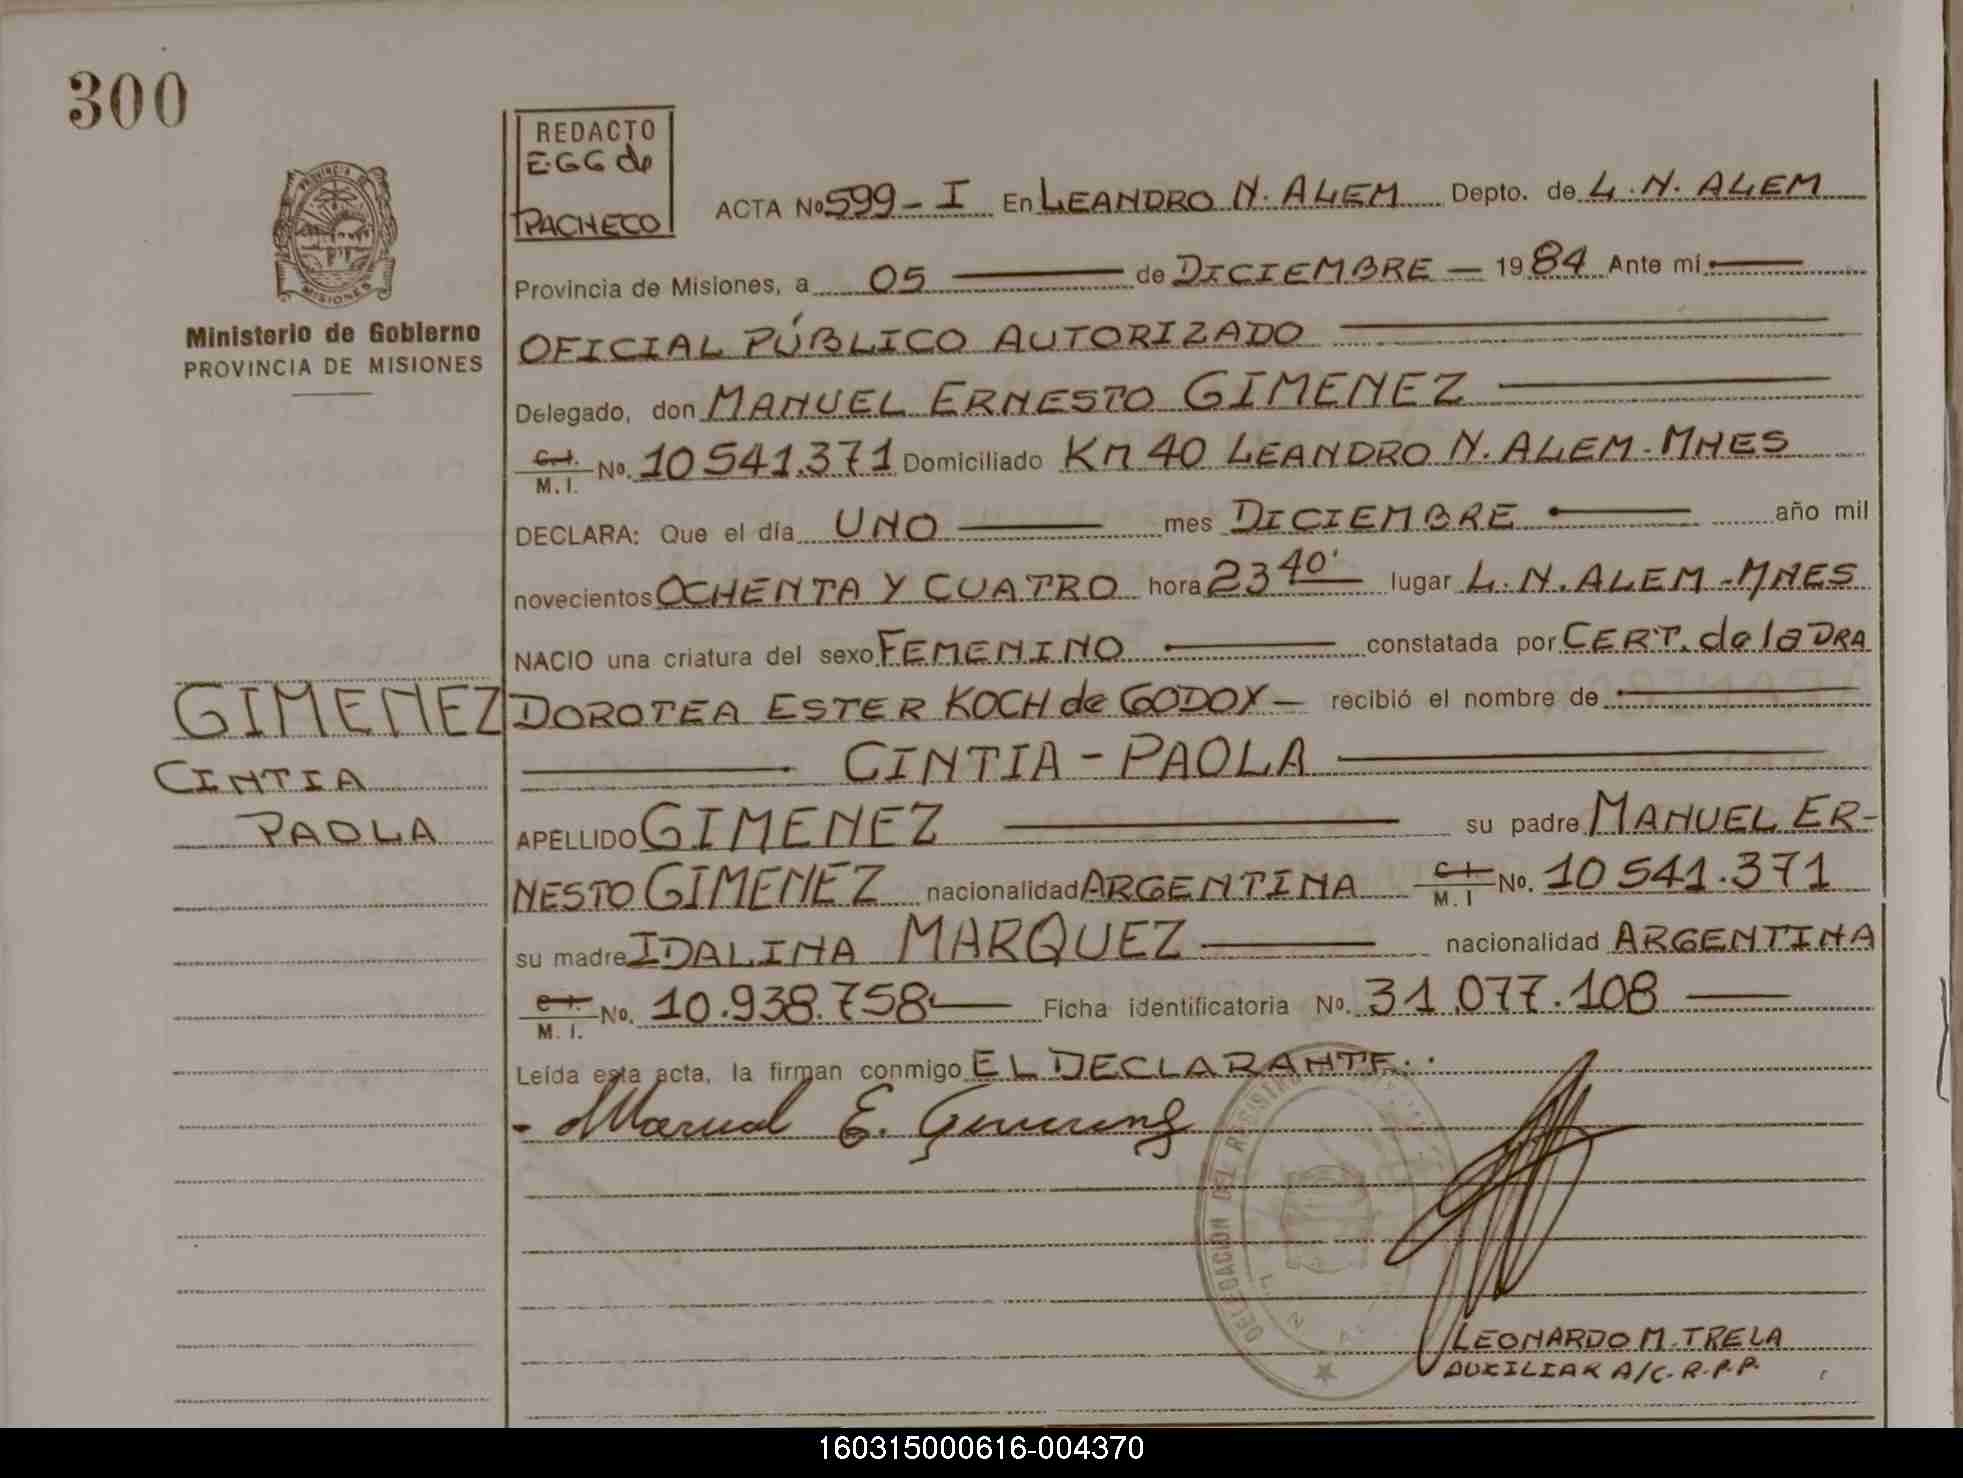 300
REDACTO
E.GG de
PACHECO
PROVINCIA DE
MISIONES
Ministerio de Gobierno
PROVINCIA DE MISIONES
ACTA Nº 599-I En LEANDRO N. ALEM Depto. de L.N. ALEM
Provincia de Misiones, a 05 de DICIEMBRE — 1984 Ante mí
OFICIAL PÚBLICO AUTORIZADO
Delegado, don MANUEL ERNESTO GIMENEZ
C.I. M.I. Nº. 10541.371 Domiciliado Km 40 LEANDRO N. ALEM-MNES
DECLARA: Que el día UNO mes DICIEMBRE año mil
novecientos OCHENTA Y CUATRO hora 23 40' lugar L.N.ALEM-MNES
NACIO una criatura del sexo FEMENINO constatada por CERT. de la DRA
GIMENEZ
CINTIA
PAOLA
DOROTEA ESTER KOCH de GODOY — recibió el nombre de
CINTIA - PAOLA
APELLIDO GIMENEZ su padre MANUEL ER-
NESTO GIMENEZ nacionalidad ARGENTINA C.I. M.I Nº. 10541.371
su madre IDALINA MARQUEZ nacionalidad ARGENTINA
C.I. M.I. Nº. 10.938.758 Ficha identificatoria Nº. 31.077.108
Leída esta acta, la firman conmigo EL DECLARANTE..
- Manuel E. Gimenez
DELEGACION DEL REGISTRO
LEONARDO M. TRELA
AUXILIAR A/C. R.P.P.
160315000616-004370